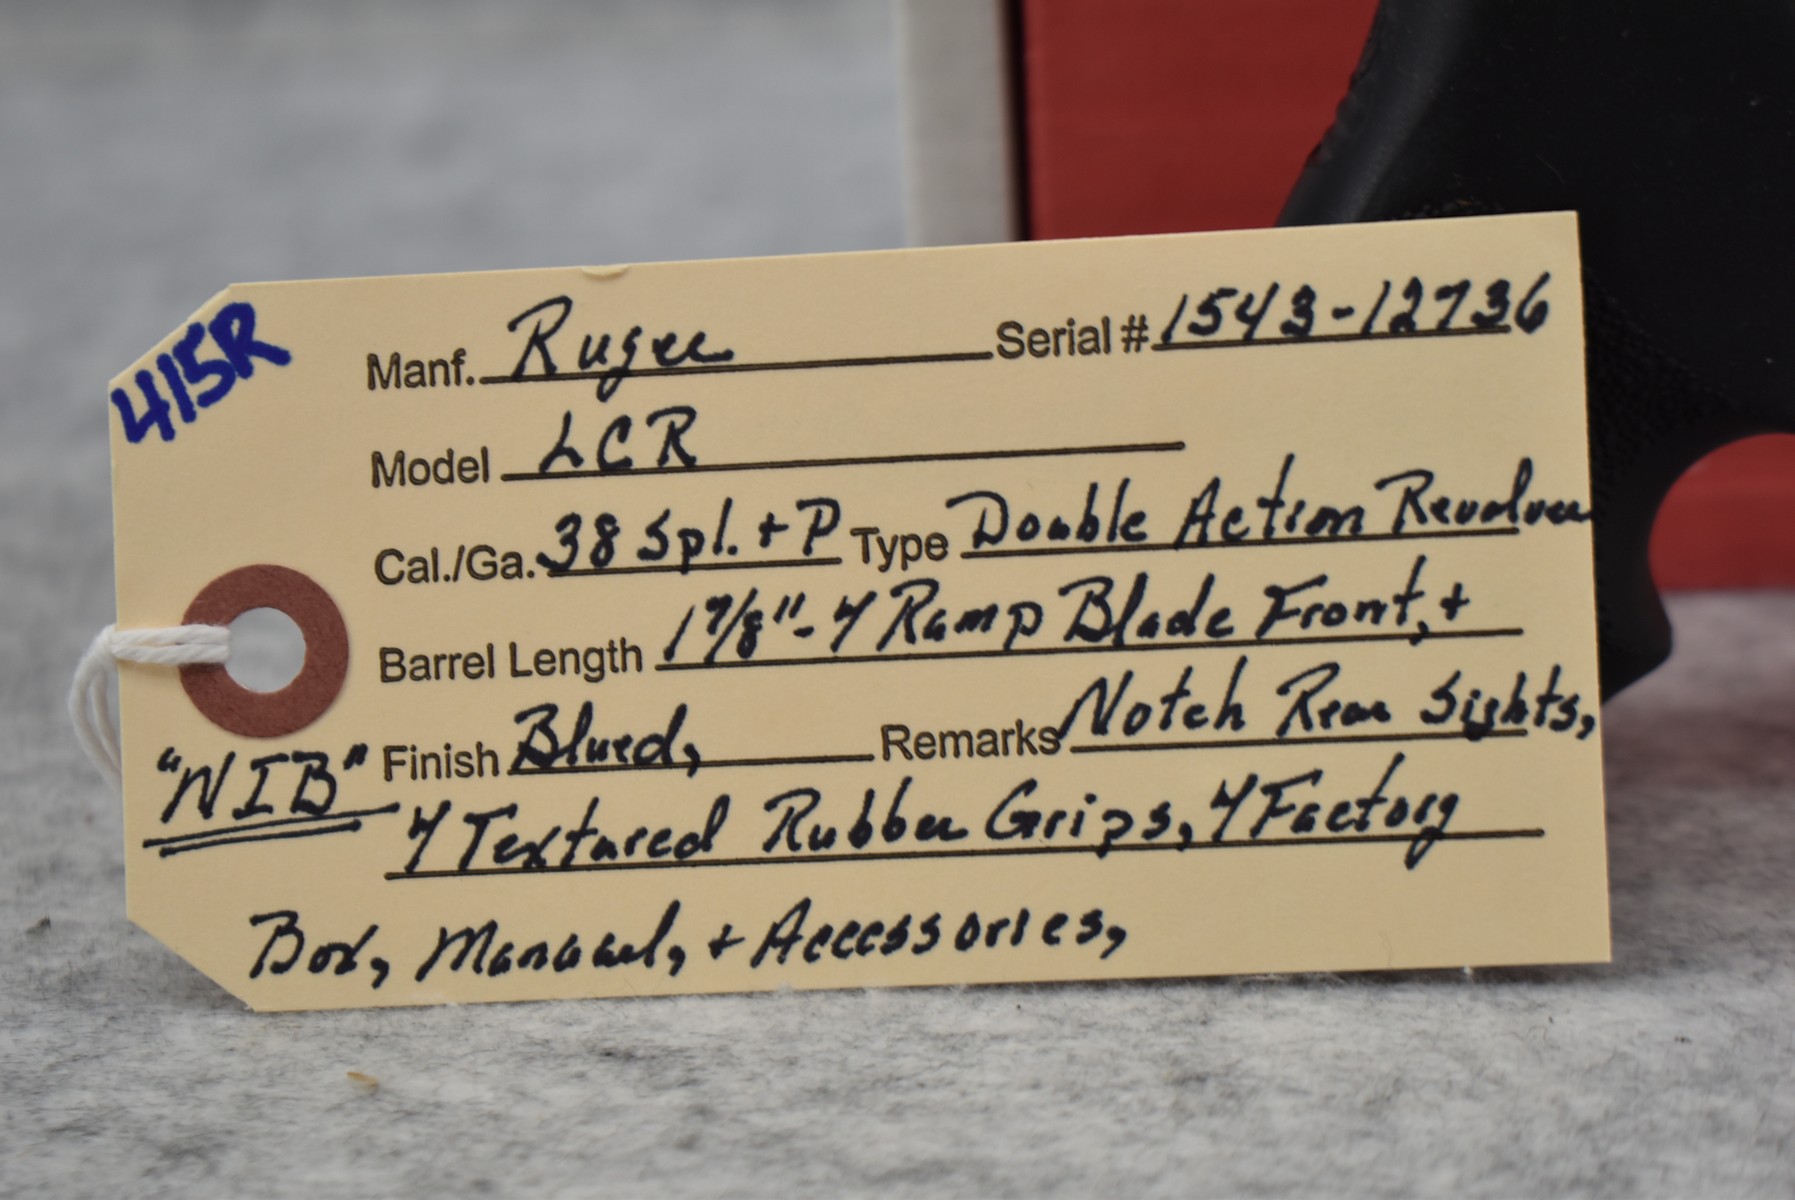 415R
Manf. Ruger Serial # 1543-12736
Model LCR
Cal./Ga. 38 Spl. + P Type Double Action Revolver
Barrel Length 1 7/8" - 4 Ramp Blade Front, +
Finish Blued, Remarks Notch Rear Sights,
"NIB"
4 Textured Rubber Grips, 4 Factory
Box, Manual, + Accessories,